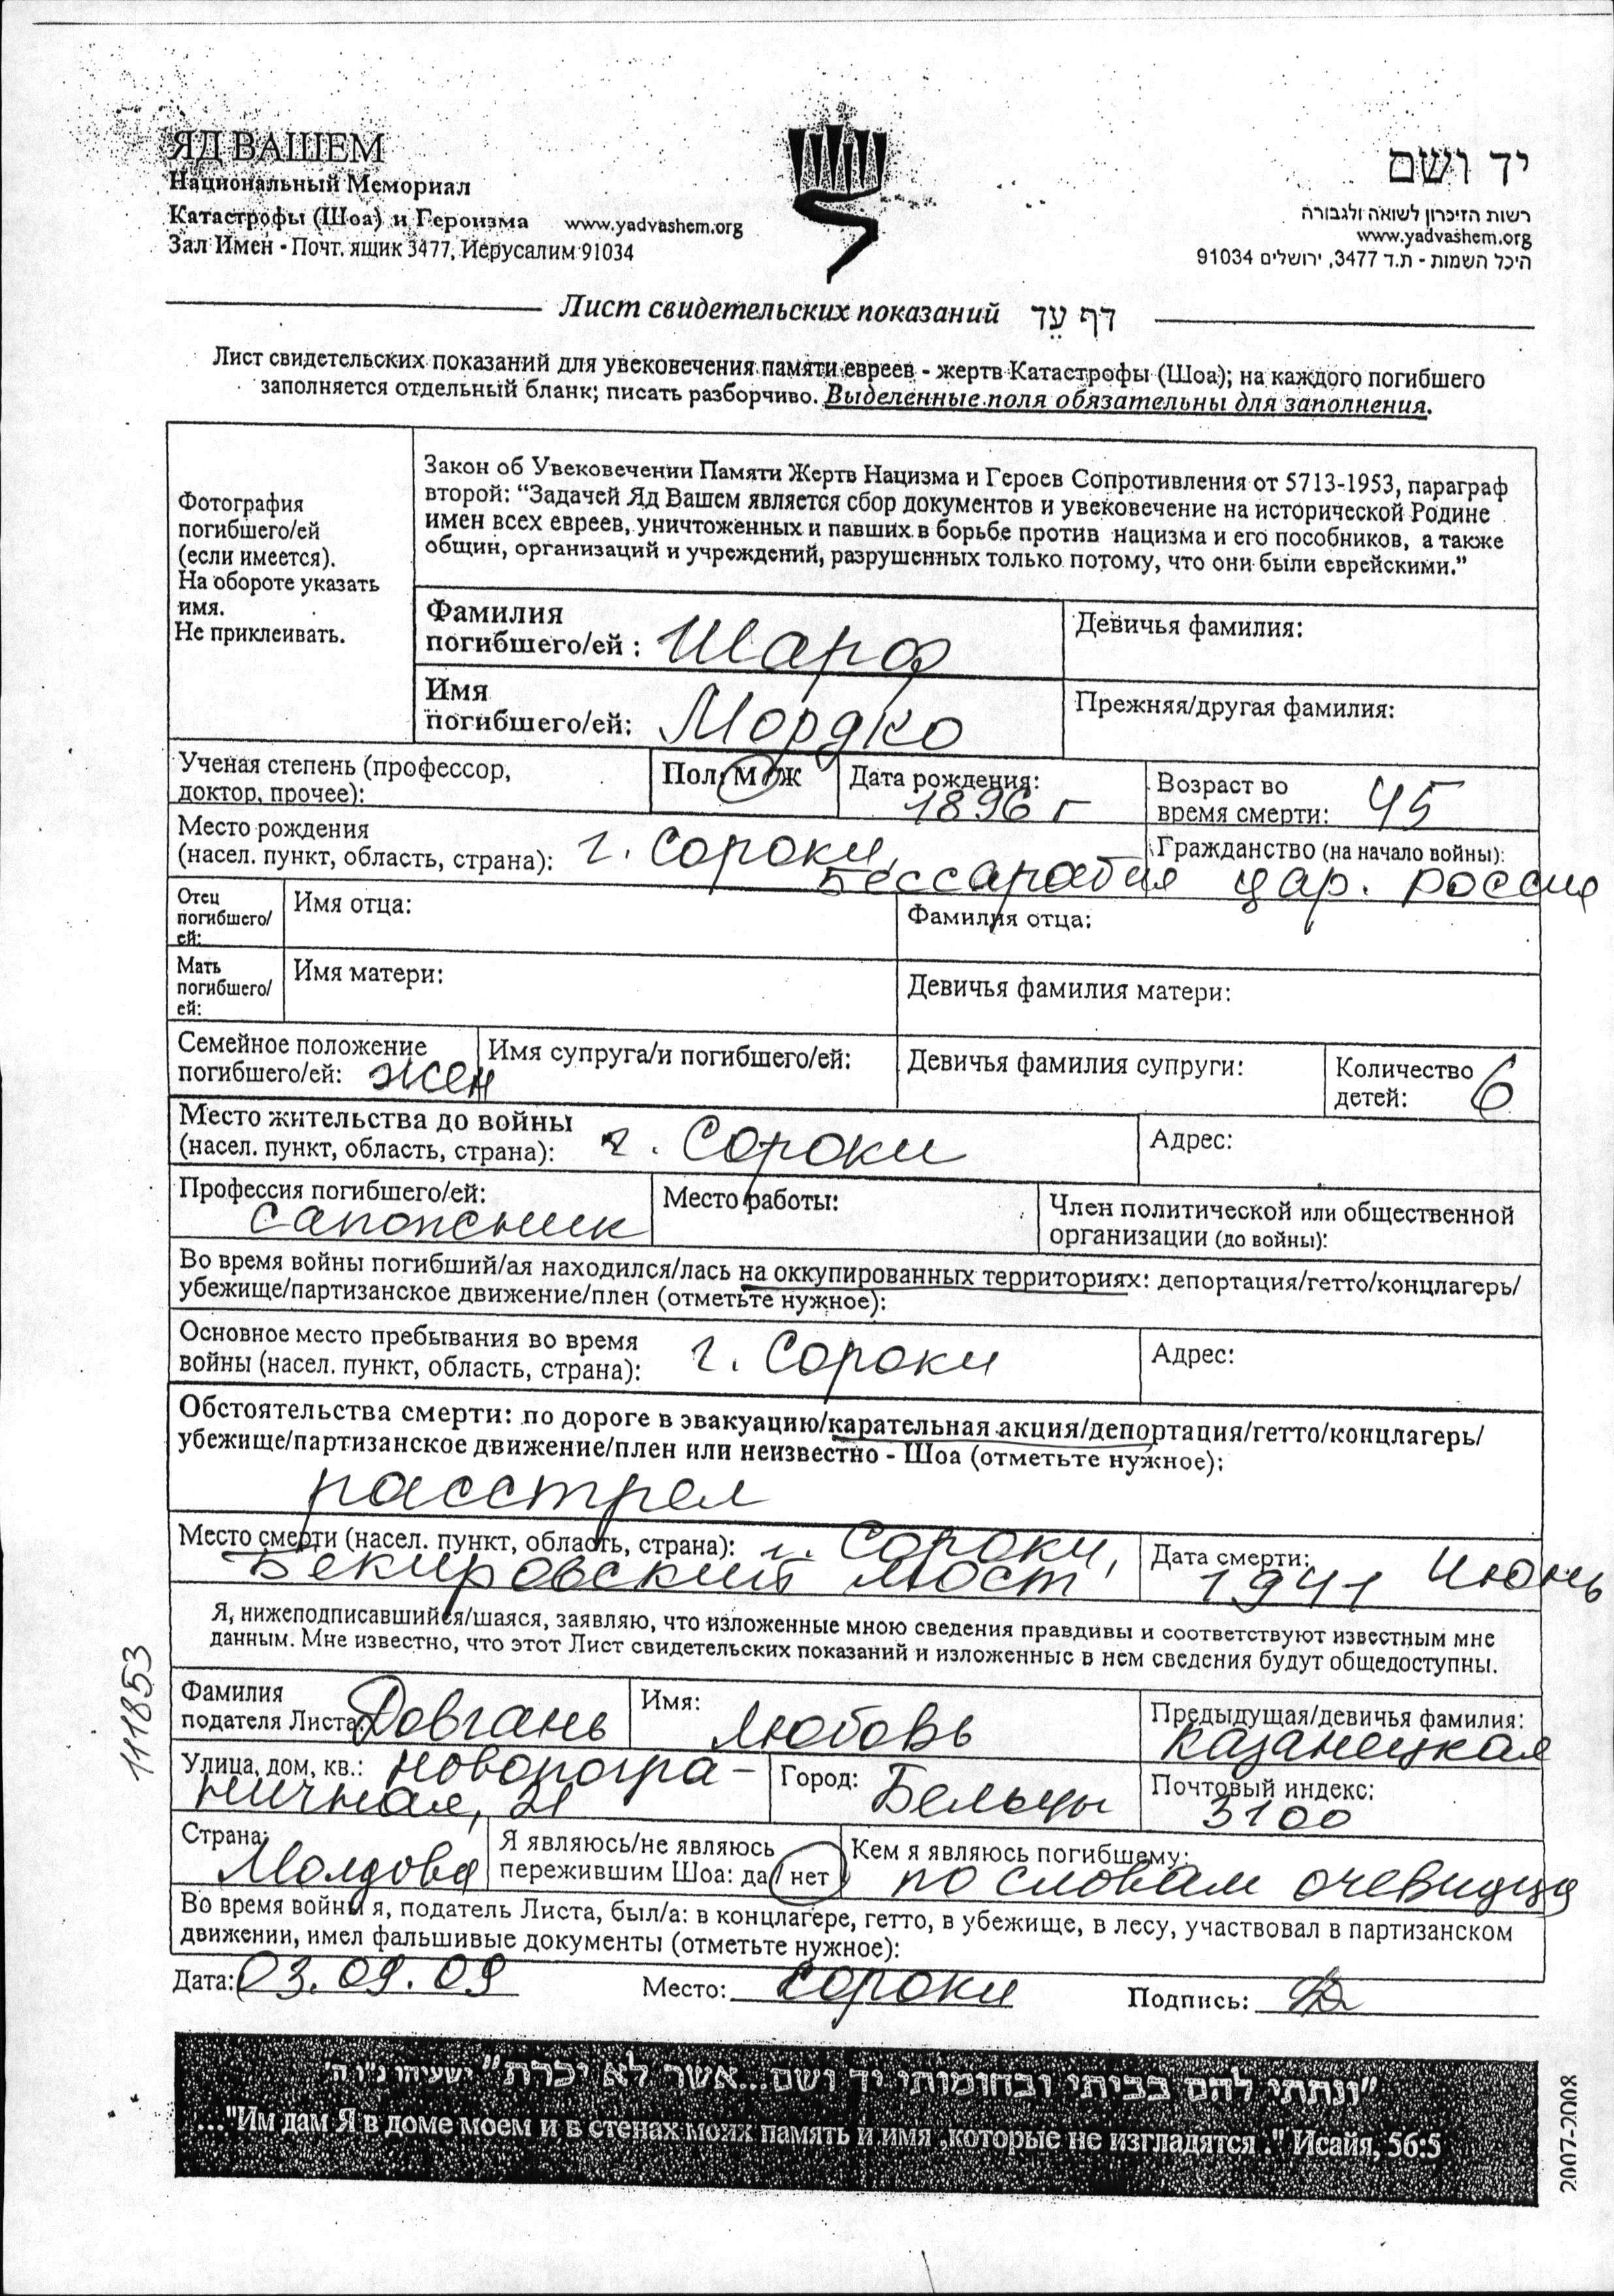 ЯД ВАШЕМ
Национальный Мемориал
Катастрофы (Шоа) и Героизма www.yadvashem.org
Зал Имен - Почт. ящик 3477, Иерусалим 91034
יד ושם
רשות הזיכרון לשואה ולגבורה
www.yadvashem.org
היכל השמות - ת.ד 3477, ירושלים 91034
Лист свидетельских показаний דף עֵד
Лист свидетельских показаний для увековечения памяти евреев - жертв Катастрофы (Шоа); на каждого погибшего
заполняется отдельный бланк; писать разборчиво. Выделенные поля обязательны для заполнения.
Фотография
погибшего/ей
(если имеется).
На обороте указать
имя.
Не приклеивать.
Закон об Увековечении Памяти Жертв Нацизма и Героев Сопротивления от 5713-1953, параграф
второй: “Задачей Яд Вашем является сбор документов и увековечение на исторической Родине
имен всех евреев, уничтоженных и павших в борьбе против нацизма и его пособников, а также
общин, организаций и учреждений, разрушенных только потому, что они были еврейскими.”
Фамилия
погибшего/ей : Шарф
Девичья фамилия:
Имя
погибшего/ей: Мордко
Прежняя/другая фамилия:
Ученая степень (профессор,
доктор, прочее):
Пол: М / Ж
Дата рождения:
1896 г
Возраст во
время смерти: 45
Место рождения
(насел. пункт, область, страна): г. Сороки,
Бессарабия
Гражданство (на начало войны):
цар. россия
Отец
погибшего/
ей:
Имя отца:
Фамилия отца:
Мать
погибшего/
ей:
Имя матери:
Девичья фамилия матери:
Семейное положение
погибшего/ей: жен
Имя супруга/и погибшего/ей:
Девичья фамилия супруги:
Количество
детей: 6
Место жительства до войны
(насел. пункт, область, страна): г. Сороки
Адрес:
Профессия погибшего/ей:
сапожник
Место работы:
Член политической или общественной
организации (до войны):
Во время войны погибший/ая находился/лась на оккупированных территориях: депортация/гетто/концлагерь/
убежище/партизанское движение/плен (отметьте нужное):
Основное место пребывания во время
войны (насел. пункт, область, страна): г. Сороки
Адрес:
Обстоятельства смерти: по дороге в эвакуацию/карательная акция/депортация/гетто/концлагерь/
убежище/партизанское движение/плен или неизвестно - Шоа (отметьте нужное):
расстрел
Место смерти (насел. пункт, область, страна): г. Сороки,
Бекировский мост
Дата смерти:
1941 Июнь
Я, нижеподписавшийся/шаяся, заявляю, что изложенные мною сведения правдивы и соответствуют известным мне
данным. Мне известно, что этот Лист свидетельских показаний и изложенные в нем сведения будут общедоступны.
111853
Фамилия
подателя Листа: Довгань
Имя:
Любовь
Предыдущая/девичья фамилия:
Казанецкая
Улица, дом, кв.: Новопогра-
ничная, 21
Город: Бельцы
Почтовый индекс:
3100
Страна:
Молдова
Я являюсь/не являюсь
пережившим Шоа: да / нет
Кем я являюсь погибшему:
по словам очевидца
Во время войны я, податель Листа, был/а: в концлагере, гетто, в убежище, в лесу, участвовал в партизанском
движении, имел фальшивые документы (отметьте нужное):
Дата: 03.09.09 Место: Сороки Подпись:
"ונתתי להם בביתי ובחומותי יד ושם...אשר לא יכרת" ישעיהו נ"ו ה'
..."Им дам Я в доме моем и в стенах моих память и имя ,которые не изгладятся ." Исайя, 56:5
2007-2008